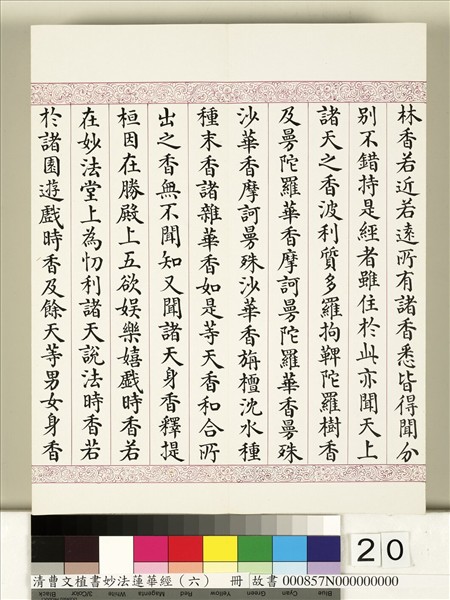 林香若近若遠所有諸香悉皆得聞分
別不錯持是經者雖住於此亦聞天上
諸天之香波利質多羅拘鞞陀羅樹香
及曼陀羅華香摩訶曼陀羅華香曼殊
沙華香摩訶曼殊沙華香旃檀沈水種
種末香諸雜華香如是等天香和合所
出之香無不聞知又聞諸天身香釋提
桓因在勝殿上五欲娛樂嬉戲時香若
在妙法堂上為忉利諸天說法時香若
於諸園遊戲時香及餘天等男女身香
20
Black 3/Color White Magenta Red Yellow Green Cyan Blue
清曹文植書妙法蓮華經（六） 冊 故書 000857N000000000